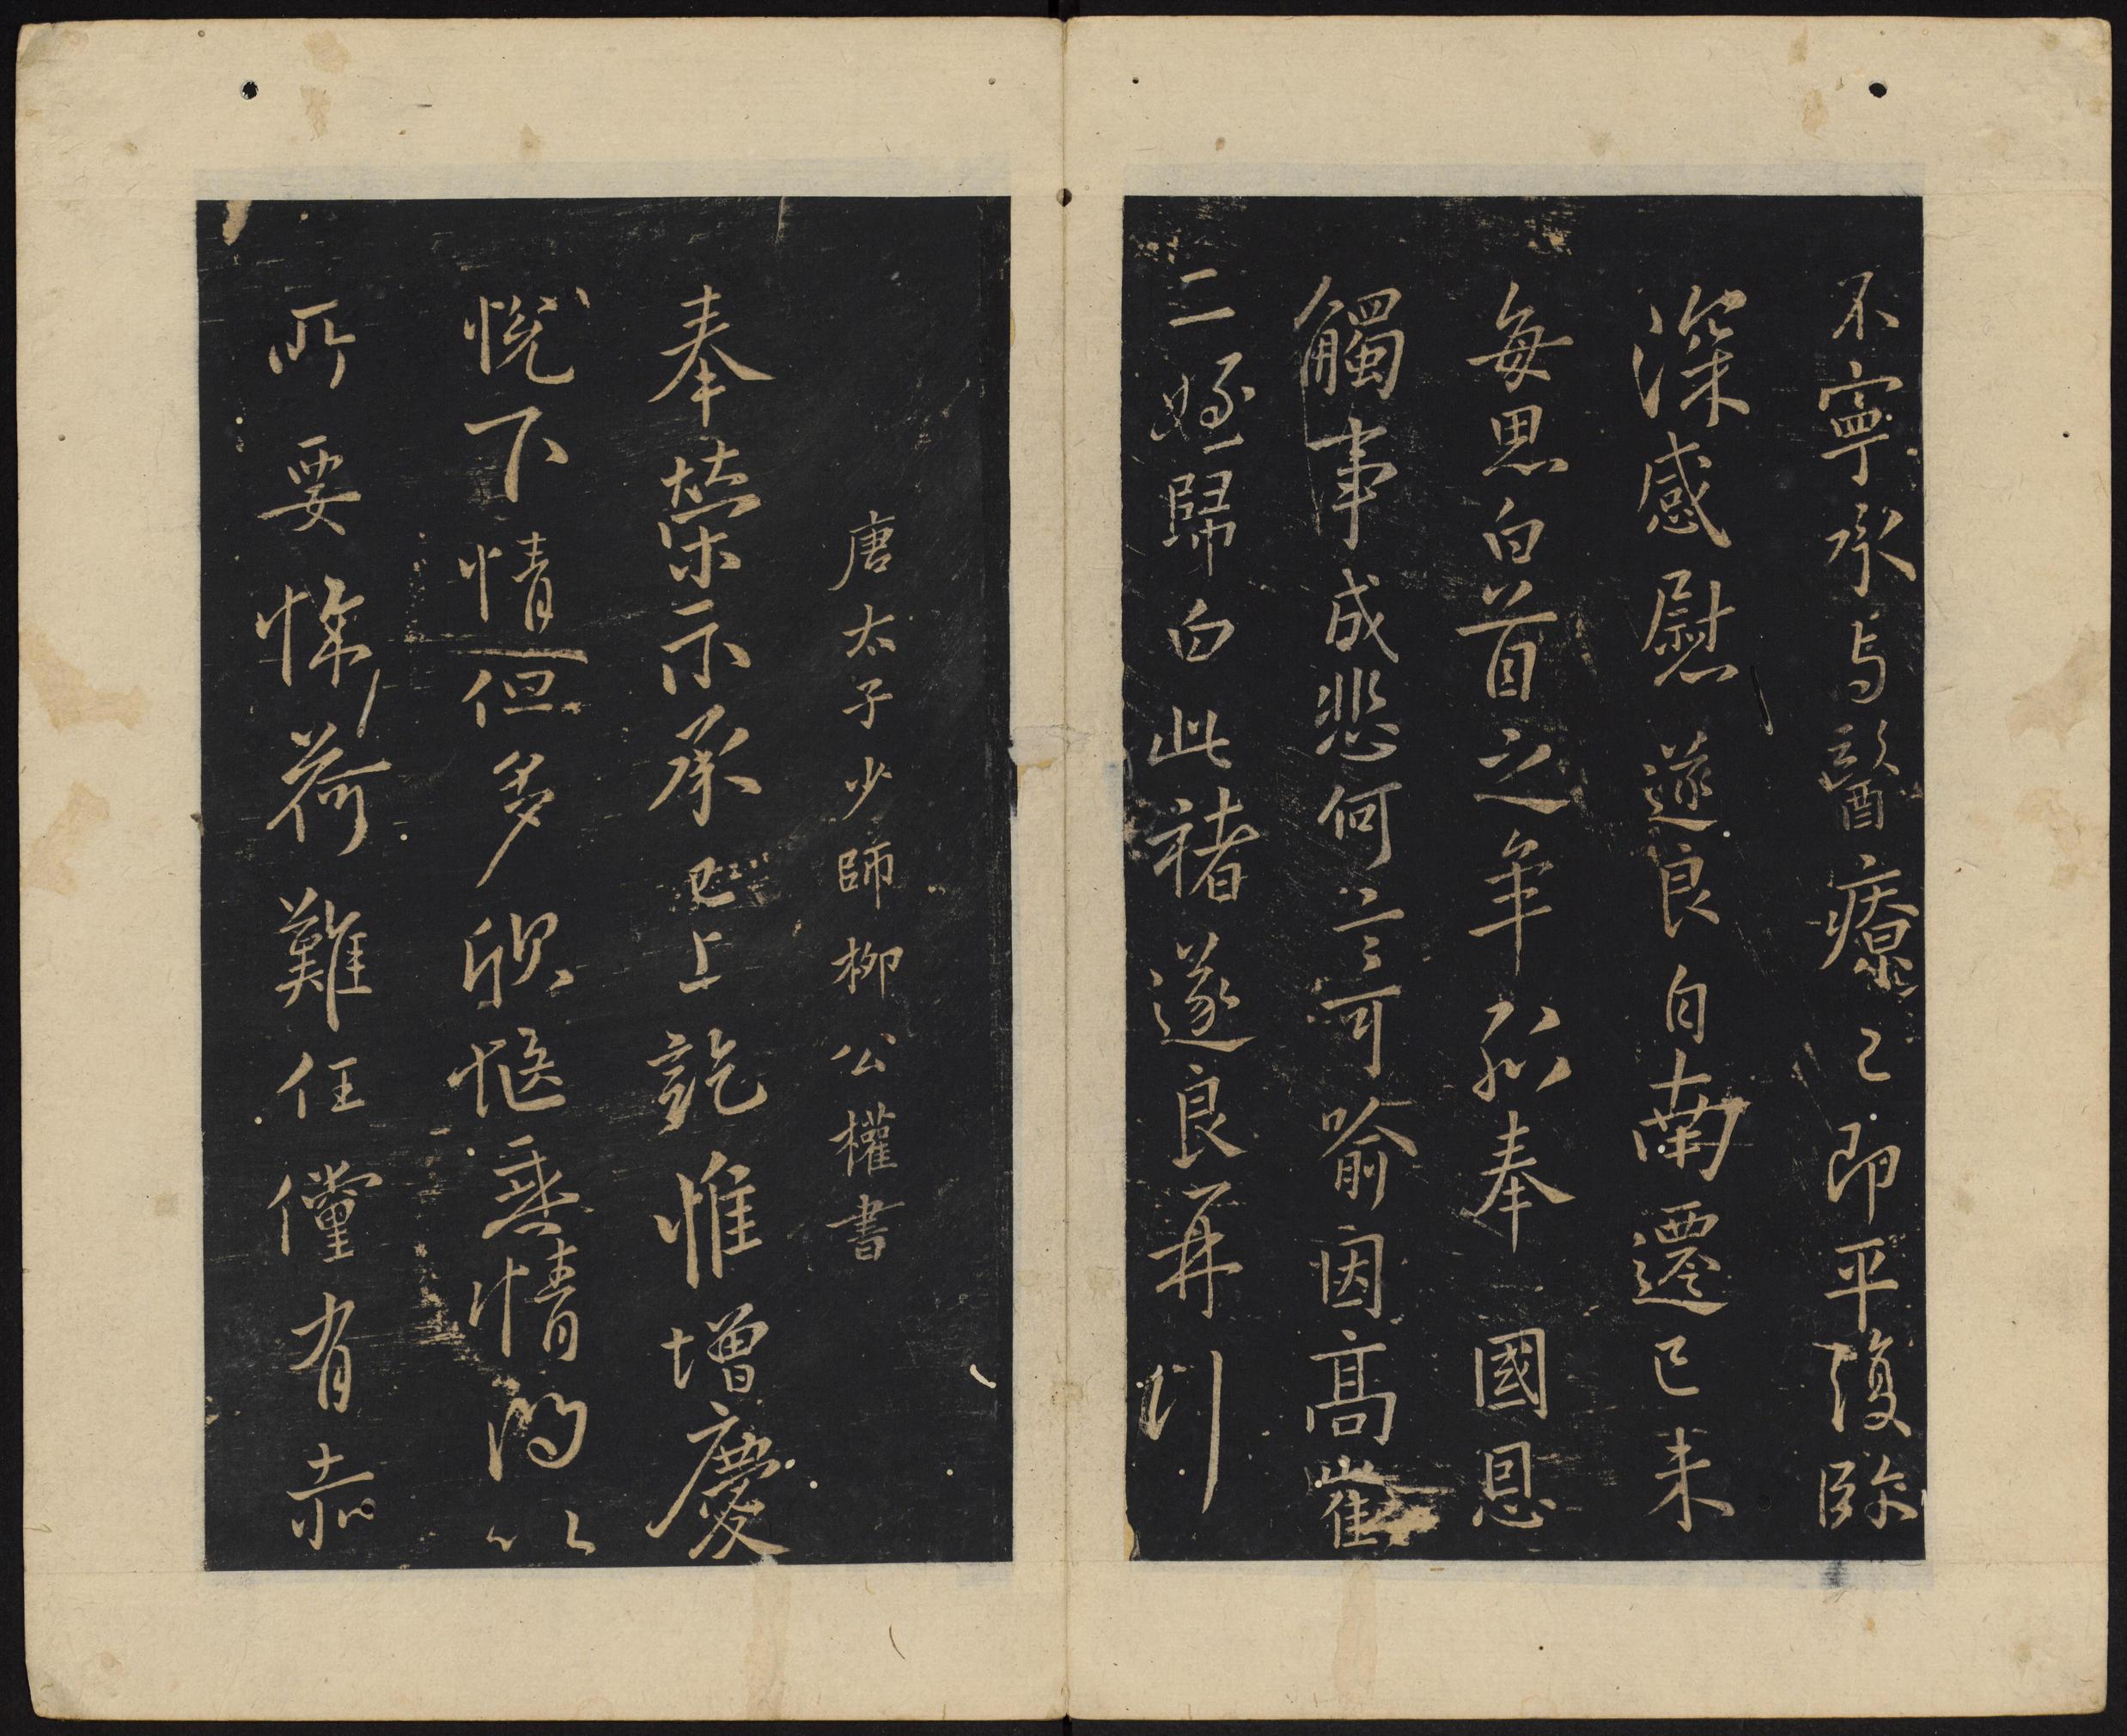 不寧承与醫療之即平復弥
深感慰遂良自南遷已来
每思白首之年孤奉國恩
觸事成悲何言可喻因高崔
二姪歸白此褚遂良再拜
唐太子少師柳公權書
奉榮示承已上訖惟增慶
悅下情但多欣愜垂情問以
所要悚荷難任儻有赤